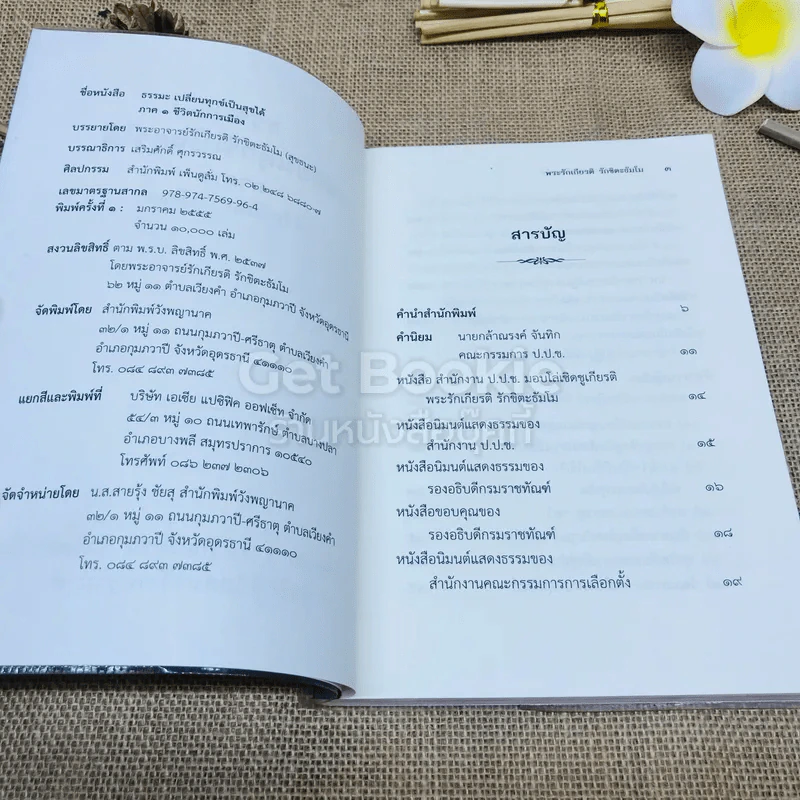 ชื่อหนังสือ ธรรมะ เปลี่ยนทุกข์เป็นสุขได้
ภาค ๑ ชีวิตนักการเมือง
บรรยายโดย พระอาจารย์รักเกียรติ รักขิตะธัมโม (สุขธนะ)
บรรณาธิการ เสริมศักดิ์ ศุกรวรรณ
ศิลปกรรม สำนักพิมพ์ เพ็นตูลั่ม โทร. ๐๒ ๒๔๘ ๖๘๘๐-๗
เลขมาตรฐานสากล 978-974-7569-96-4
พิมพ์ครั้งที่ ๑ : มกราคม ๒๕๕๕
จำนวน ๑๐,๐๐๐ เล่ม
สงวนลิขสิทธิ์ ตาม พ.ร.บ. ลิขสิทธิ์ พ.ศ. ๒๕๓๗
โดยพระอาจารย์รักเกียรติ รักขิตะธัมโม
๖๒ หมู่ ๑๑ ตำบลเวียงคำ อำเภอกุมภวาปี จังหวัดอุดรธานี
จัดพิมพ์โดย สำนักพิมพ์วังพญานาค
๓๒/๑ หมู่ ๑๑ ถนนกุมภวาปี-ศรีธาตุ ตำบลเวียงคำ
อำเภอกุมภวาปี จังหวัดอุดรธานี ๔๑๑๑๐
โทร. ๐๘๔ ๘๙๓ ๗๓๘๕
แยกสีและพิมพ์ที่ บริษัท เอเซีย แปซิฟิค ออฟเซ็ท จำกัด
๕๔/๓ หมู่ ๑๐ ถนนเทพารักษ์ ตำบลบางปลา
อำเภอบางพลี สมุทรปราการ ๑๐๕๔๐
โทรศัพท์ ๐๘๖ ๒๓๗ ๒๓๐๖
จัดจำหน่ายโดย น.ส.สายรุ้ง ชัยสุ สำนักพิมพ์วังพญานาค
๓๒/๑ หมู่ ๑๑ ถนนกุมภวาปี-ศรีธาตุ ตำบลเวียงคำ
อำเภอกุมภวาปี จังหวัดอุดรธานี ๔๑๑๑๐
โทร. ๐๘๔ ๘๙๓ ๗๓๘๕
พระรักเกียรติ รักขิตะธัมโม ๓
สารบัญ
คำนำสำนักพิมพ์ ๖
คำนิยม นายกล้าณรงค์ จันทิก
คณะกรรมการ ป.ป.ช. ๑๑
หนังสือ สำนักงาน ป.ป.ช. มอบโล่เชิดชูเกียรติ
พระรักเกียรติ รักขิตะธัมโม ๑๔
หนังสือนิมนต์แสดงธรรมของ
สำนักงาน ป.ป.ช. ๑๕
หนังสือนิมนต์แสดงธรรมของ
รองอธิบดีกรมราชทัณฑ์ ๑๖
หนังสือขอบคุณของ
รองอธิบดีกรมราชทัณฑ์ ๑๘
หนังสือนิมนต์แสดงธรรมของ
สำนักงานคณะกรรมการการเลือกตั้ง ๑๙
Get Bookie
ร้านหนังสือบุ๊คกี้